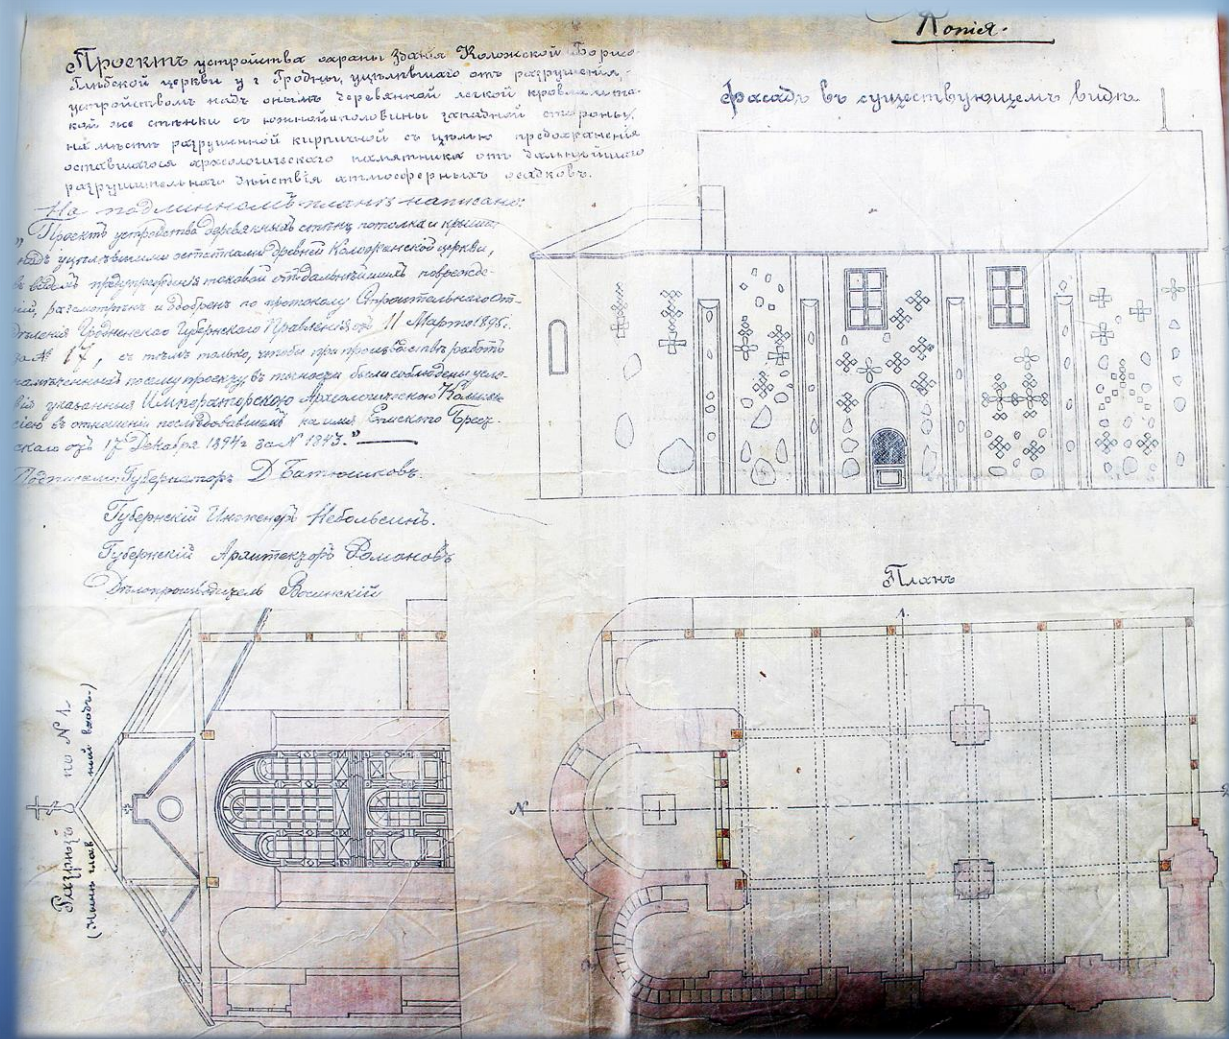 Копія.
Проектъ устройства охраны зданія Коложской Борисо
Глѣбской церкви у г Гродны, уцѣлѣвшаго отъ разрушенія,
устройствомъ надъ онымъ деревянной легкой кровли и та-
кой же стѣнки съ южной половины западной стороны,
на мѣстѣ разрушенной кирпичной съ цѣлью предохраненія
оставшагося археологическаго памятника отъ дальнѣйшаго
разрушительнаго дѣйствія атмосферныхъ осадковъ.
На подлинномъ планѣ написано:
„Проектъ устройства деревянныхъ стѣнъ потолка и крыши
надъ уцѣлѣвшими остатками древней Коложанской церкви,
въ видахъ предупрежденія таковой отъ дальнѣйшихъ поврежде-
ній, разсмотрѣнъ и одобренъ по протоколу Строительнаго От-
дѣленія Гродненскаго Губернскаго Правленія отъ 11 Марта 1895г.
за № 17, съ тѣмъ только, чтобы при производствѣ работъ
по сему проекту въ точности были соблюдены усло-
вія указанныя Императорскою Археологическою Комис-
сіею въ отношеніи послѣдовавшемъ на имя Епископа Брест-
скаго отъ 17 Декабря 1894г за № 1843.“
Подписали: Губернаторъ Д Батюшковъ.
Губернскій Инженеръ Небольсинъ.
Губернскій Архитекторъ Романовъ
Дѣлопроизводитель
Фасадъ въ существующемъ видѣ.
Планъ
Разрѣзъ по № 1.
(Нынѣ главный входъ.)